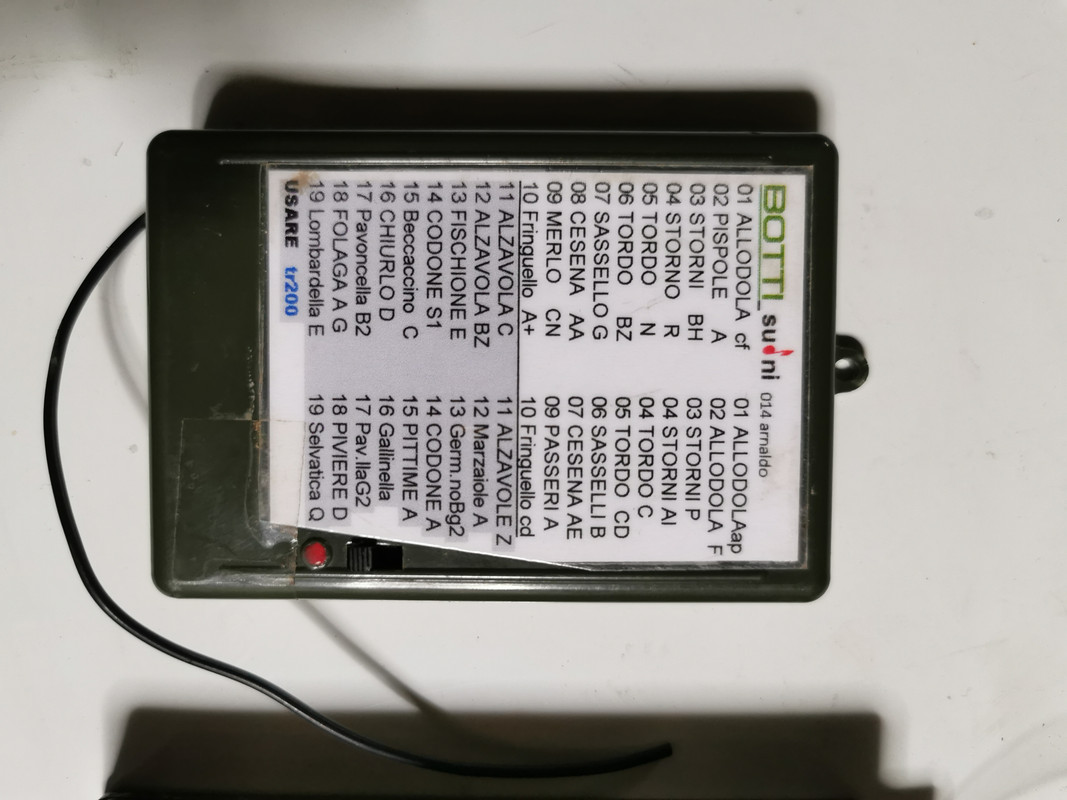 BOTTI_suoni 014 arnaldo
01 ALLODOLA cf 01 ALLODOLAap
02 PISPOLE A 02 ALLODOLA F
03 STORNI BH 03 STORNI P
04 STORNO R 04 STORNI AI
05 TORDO N 04 TORDO C
06 TORDO BZ 05 TORDO CD
07 SASSELLO G 06 SASSELLI B
08 CESENA AA 07 CESENA AE
09 MERLO CN 09 PASSERI A
10 Fringuello A+ 10 Fringuello cd
11 ALZAVOLA C 11 ALZAVOLE Z
12 ALZAVOLA BZ 12 Marzaiole A
13 FISCHIONE E 13 Germ.noBg2
14 CODONE S1 14 CODONE A
15 Beccaccino C 15 PITTIME A
16 CHIURLO D 16 Gallinella
17 Pavoncella B2 17 Pav.llaG2
18 FOLAGA A G 18 PIVIERE D
19 Lombardella E 19 Selvatica Q
USARE tr200